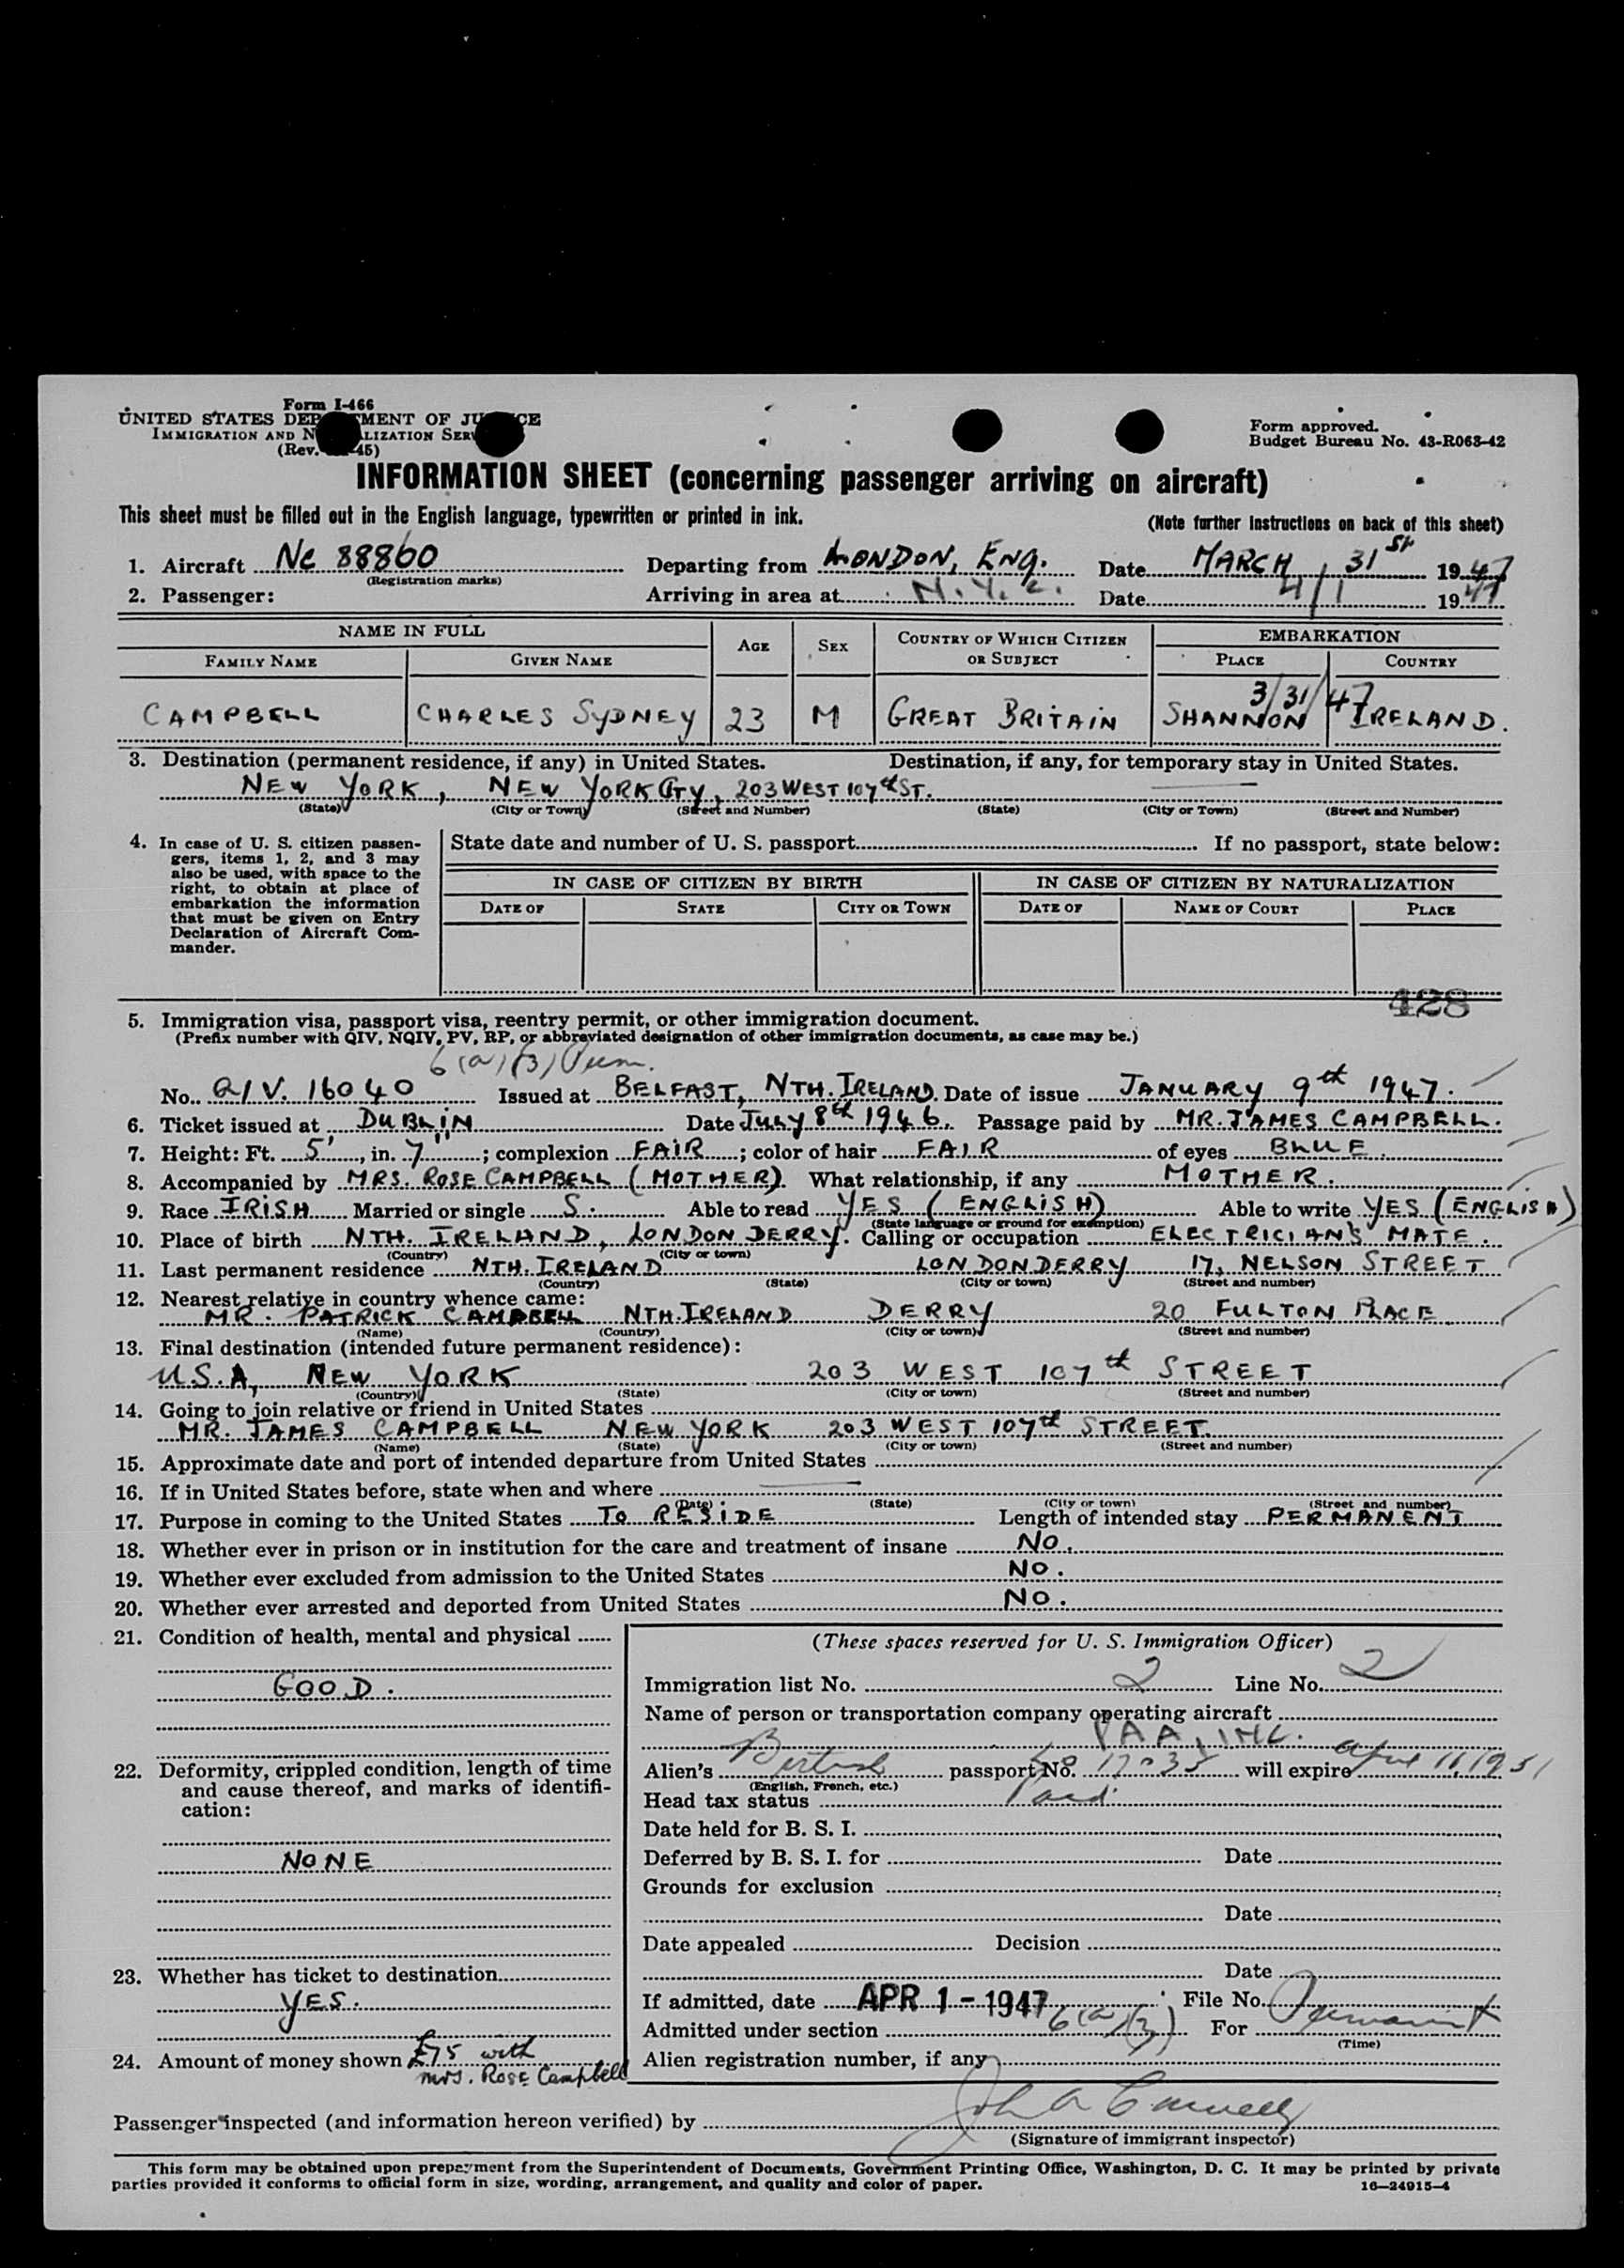 Form I-466
UNITED STATES DEP MENT OF JU CE
IMMIGRATION AND N LIZATION SER
(Rev. 45)
Form approved.
Budget Bureau No. 43-R063-42
INFORMATION SHEET (concerning passenger arriving on aircraft)
This sheet must be filled out in the English language, typewritten or printed in ink.
(Note further instructions on back of this sheet)
1. Aircraft NC 88860 Departing from LONDON, ENG. Date MARCH 31st 1947
(Registration marks)
2. Passenger: Arriving in area at N.Y.C. Date 4/1 1947
NAME IN FULL AGE SEX COUNTRY OF WHICH CITIZEN OR SUBJECT EMBARKATION
FAMILY NAME GIVEN NAME PLACE COUNTRY
3/31/47
CAMPBELL CHARLES SYDNEY 23 M GREAT BRITAIN SHANNON IRELAND.
3. Destination (permanent residence, if any) in United States. Destination, if any, for temporary stay in United States.
NEW YORK, NEW YORK CITY, 203 WEST 107th ST.
(State) (City or Town) (Street and Number) (State) (City or Town) (Street and Number)
4. In case of U. S. citizen passen-
gers, items 1, 2, and 3 may
also be used, with space to the
right, to obtain at place of
embarkation the information
that must be given on Entry
Declaration of Aircraft Com-
mander.
State date and number of U. S. passport If no passport, state below:
IN CASE OF CITIZEN BY BIRTH IN CASE OF CITIZEN BY NATURALIZATION
DATE OF STATE CITY OR TOWN DATE OF NAME OF COURT PLACE
428
5. Immigration visa, passport visa, reentry permit, or other immigration document.
(Prefix number with QIV, NQIV, PV, RP, or abbreviated designation of other immigration documents, as case may be.)
6(a)(3) Perm.
No. QIV. 16040 Issued at BELFAST, NTH. IRELAND Date of issue JANUARY 9th 1947.
6. Ticket issued at DUBLIN Date JULY 8th 1946. Passage paid by MR. JAMES CAMPBELL.
7. Height: Ft. 5', in. 7"; complexion FAIR; color of hair FAIR of eyes BLUE.
8. Accompanied by MRS. ROSE CAMPBELL (MOTHER). What relationship, if any MOTHER.
9. Race IRISH Married or single S. Able to read YES (ENGLISH) Able to write YES (ENGLISH)
(State language or ground for exemption)
10. Place of birth NTH. IRELAND, LONDON DERRY. Calling or occupation ELECTRICIAN'S MATE.
(Country) (City or town)
11. Last permanent residence NTH. IRELAND LONDONDERRY 17, NELSON STREET
(Country) (State) (City or town) (Street and number)
12. Nearest relative in country whence came:
MR. PATRICK CAMPBELL NTH. IRELAND DERRY 20 FULTON PLACE
(Name) (Country) (City or town) (Street and number)
13. Final destination (intended future permanent residence):
U.S.A, NEW YORK 203 WEST 107th STREET
(Country) (State) (City or town) (Street and number)
14. Going to join relative or friend in United States
MR. JAMES CAMPBELL NEW YORK 203 WEST 107th STREET.
(Name) (State) (City or town) (Street and number)
15. Approximate date and port of intended departure from United States
16. If in United States before, state when and where
(Date) (State) (City or town) (Street and number)
17. Purpose in coming to the United States TO RESIDE Length of intended stay PERMANENT
18. Whether ever in prison or in institution for the care and treatment of insane NO.
19. Whether ever excluded from admission to the United States NO.
20. Whether ever arrested and deported from United States NO.
21. Condition of health, mental and physical
GOOD.
22. Deformity, crippled condition, length of time
and cause thereof, and marks of identifi-
cation:
NONE
23. Whether has ticket to destination
YES.
24. Amount of money shown £75 with
Mrs. Rose Campbell
(These spaces reserved for U. S. Immigration Officer)
Immigration list No. 2 Line No. 2
Name of person or transportation company operating aircraft
PAA, INC.
Alien's British passport No. 17035 will expire April 11, 1951
(English, French, etc.)
Head tax status Paid
Date held for B. S. I.
Deferred by B. S. I. for Date
Grounds for exclusion
Date
Date appealed Decision
Date
If admitted, date APR 1 - 1947 File No.
Admitted under section 6(a)(3) For Permanent
(Time)
Alien registration number, if any
Passenger inspected (and information hereon verified) by John A
(Signature of immigrant inspector)
This form may be obtained upon prepayment from the Superintendent of Documents, Government Printing Office, Washington, D. C. It may be printed by private
parties provided it conforms to official form in size, wording, arrangement, and quality and color of paper.
16—24915-4